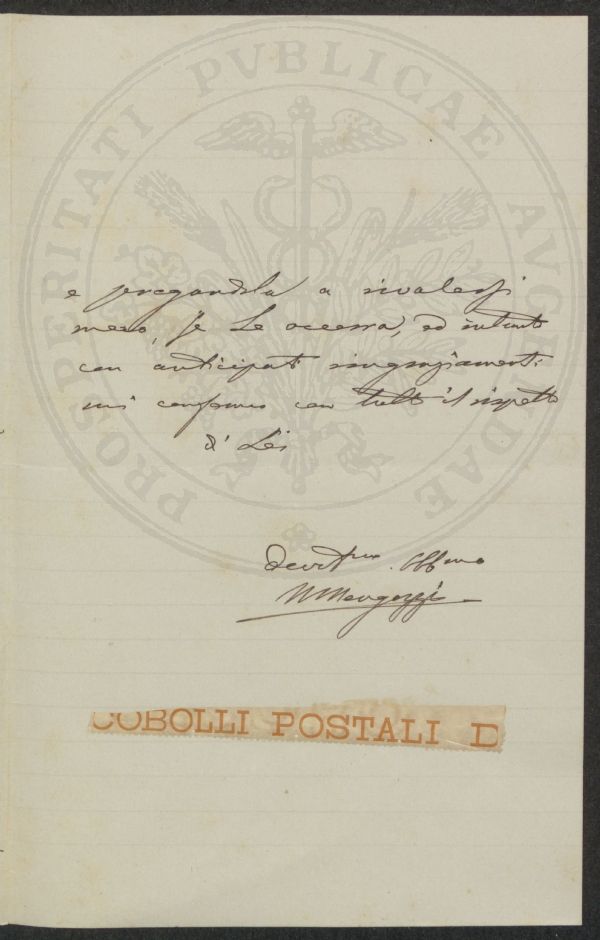 PROSPERITATI PVBLICAE AVGENDAE
e pregandola a rivalersi
meco, se Le occorra, ed intanto
con anticipati ringraziamenti
mi confermo con tutto il rispetto
di Lei
Devmo Obbmo
Mengozzi
COBOLLI POSTALI D